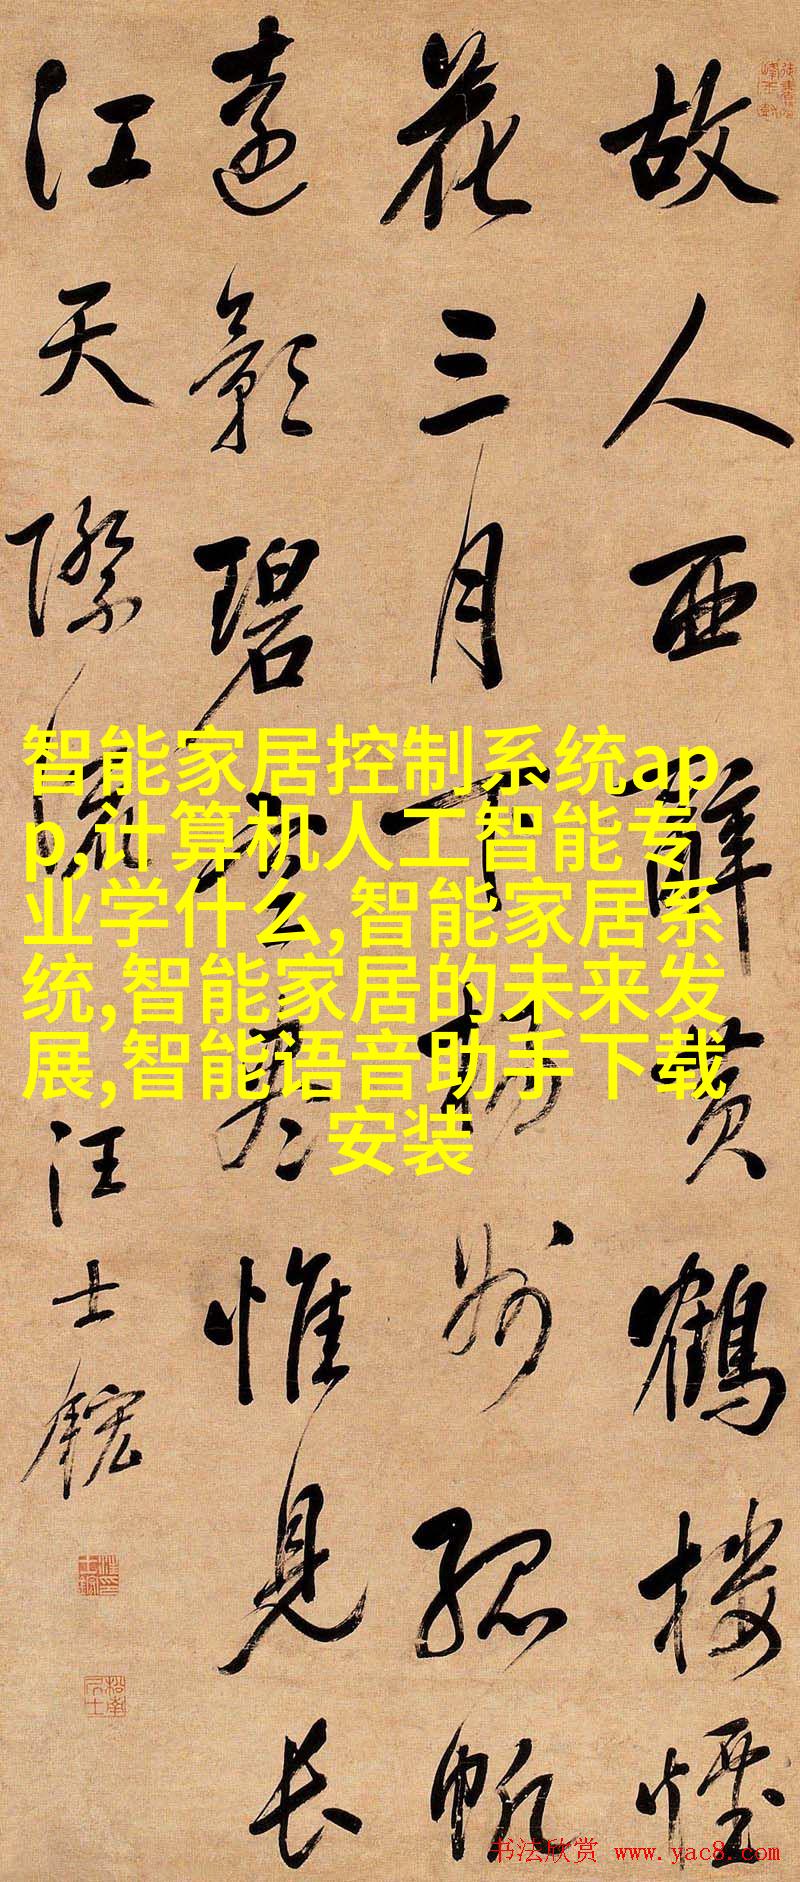 故人西辭黄鶴樓煙
花三月下揚州孤帆
遠影碧空盡惟見長
江天際流
汪士鋐
智能家居控制系统ap
p,计算机人工智能专
业学什么,智能家居系
统,智能家居的未来发
展,智能语音助手下载
安装
书法欣赏 www.yac8.com